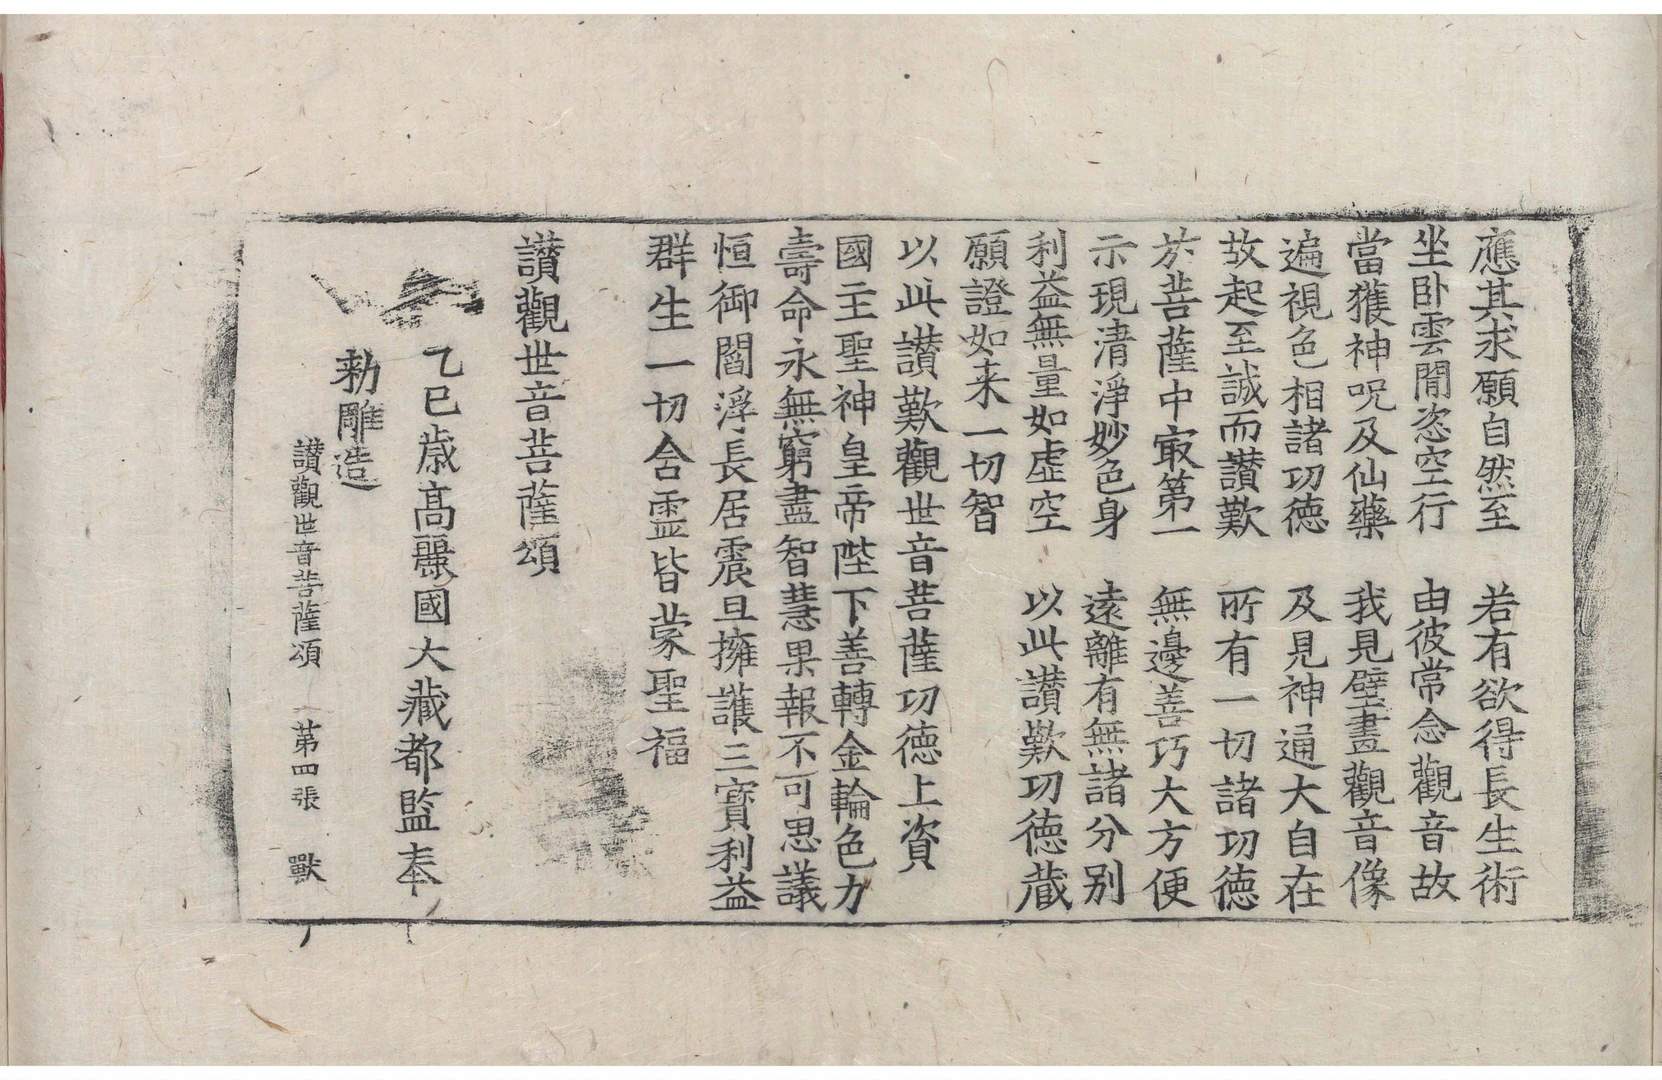 應其求願自然至　若有欲得長生術
坐卧雲閒恣空行　由彼常念觀音故
當獲神呪及仙藥　我見壁畫觀音像
遍視色相諸功徳　及見神通大自在
故起至誠而讃歎　所有一切諸功徳
於菩薩中㝡第一　無邊善巧大方便
示現清淨妙色身　遠離有無諸分别
利益無量如虛空　以此讃歎功徳蔵
願證如来一切智
以此讃歎觀世音菩薩功徳上資
國主聖神皇帝陛下善轉金輪色力
壽命永無窮盡智慧果報不可思議
恒御閻浮長居震旦擁護三寳利益
群生一切含霊皆蒙聖福
讃觀世音菩薩頌
乙巳歳高麗國大藏都監奉
勑雕造
讃觀世音菩薩頌　第四張　獸